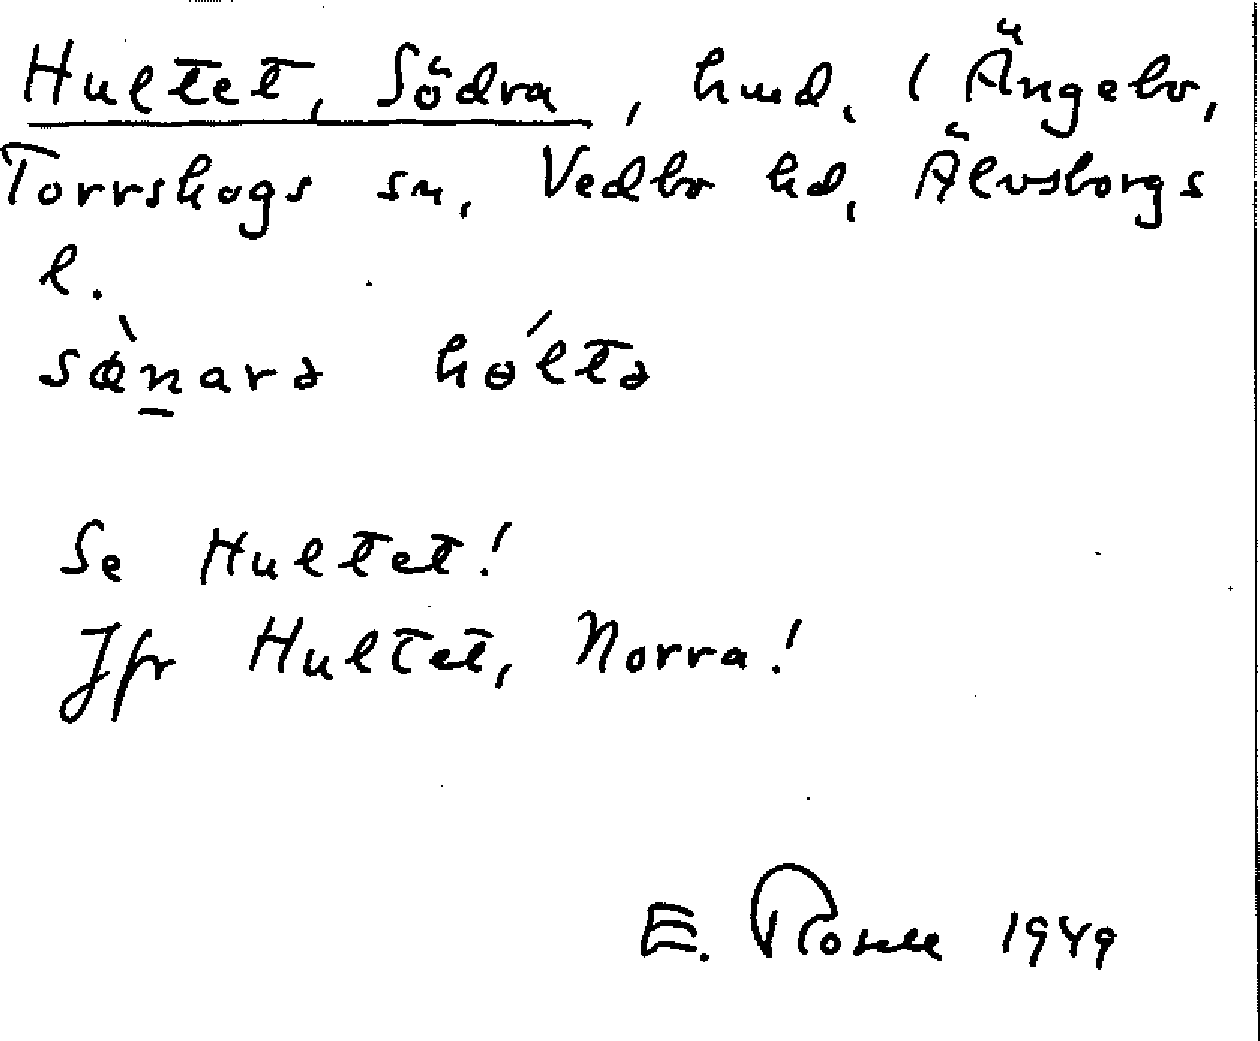 Hultet, Södra, hmd. i Ängebo,
Torrskogs sn, Vedbo hd, Älvsborgs
l.
sø̀narə hóltə
Se Hultet!
Jfr Hultet, Norra!
E. 1949